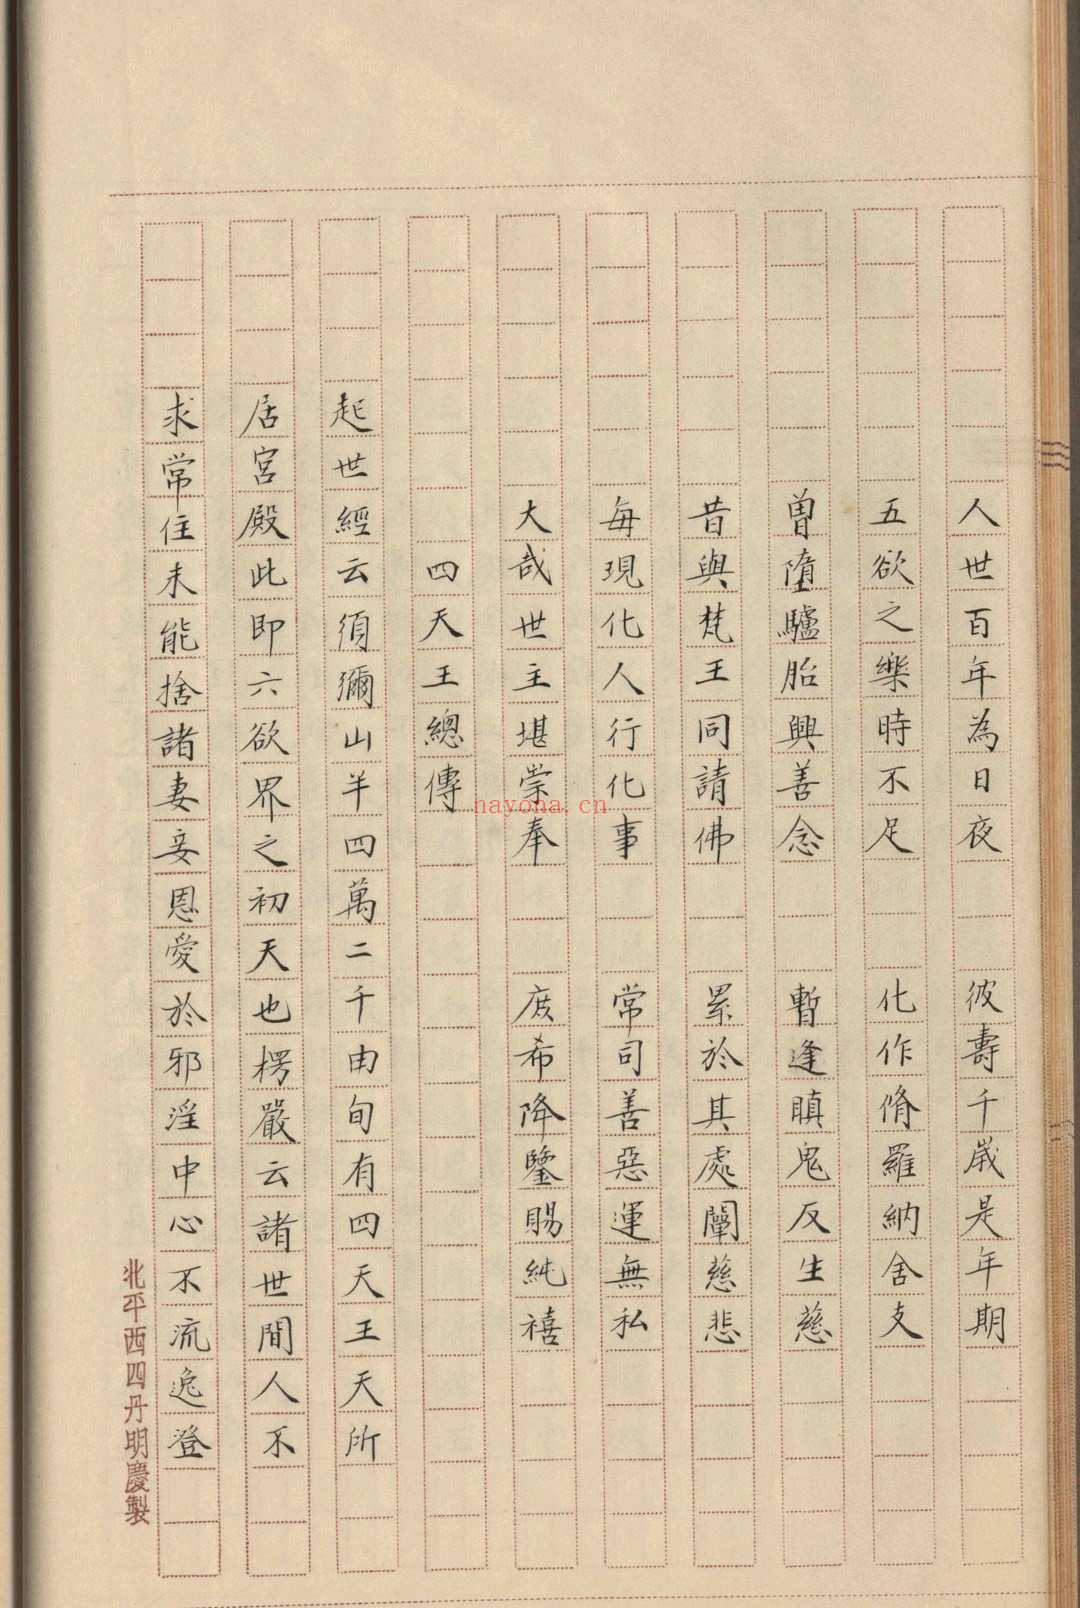 人世百年為日夜　彼壽千歲是年期
五欲之樂時不足　化作脩羅納舍支
曽墮驢胎興善念　暫逢瞋鬼反生慈
昔與梵王同請佛　累於其處闡慈悲
每現化人行化事　常司善惡運無私
大哉世主堪崇奉　庻希降鑒賜純禧
四天王總傳
起世經云須彌山半四萬二千由旬有四天王天所
居宮殿此即六欲界之初天也楞嚴云諸世間人不
求常住未能捨諸妻妾恩愛於邪淫中心不流逸澄
北平西四丹明慶製
nayona.cn